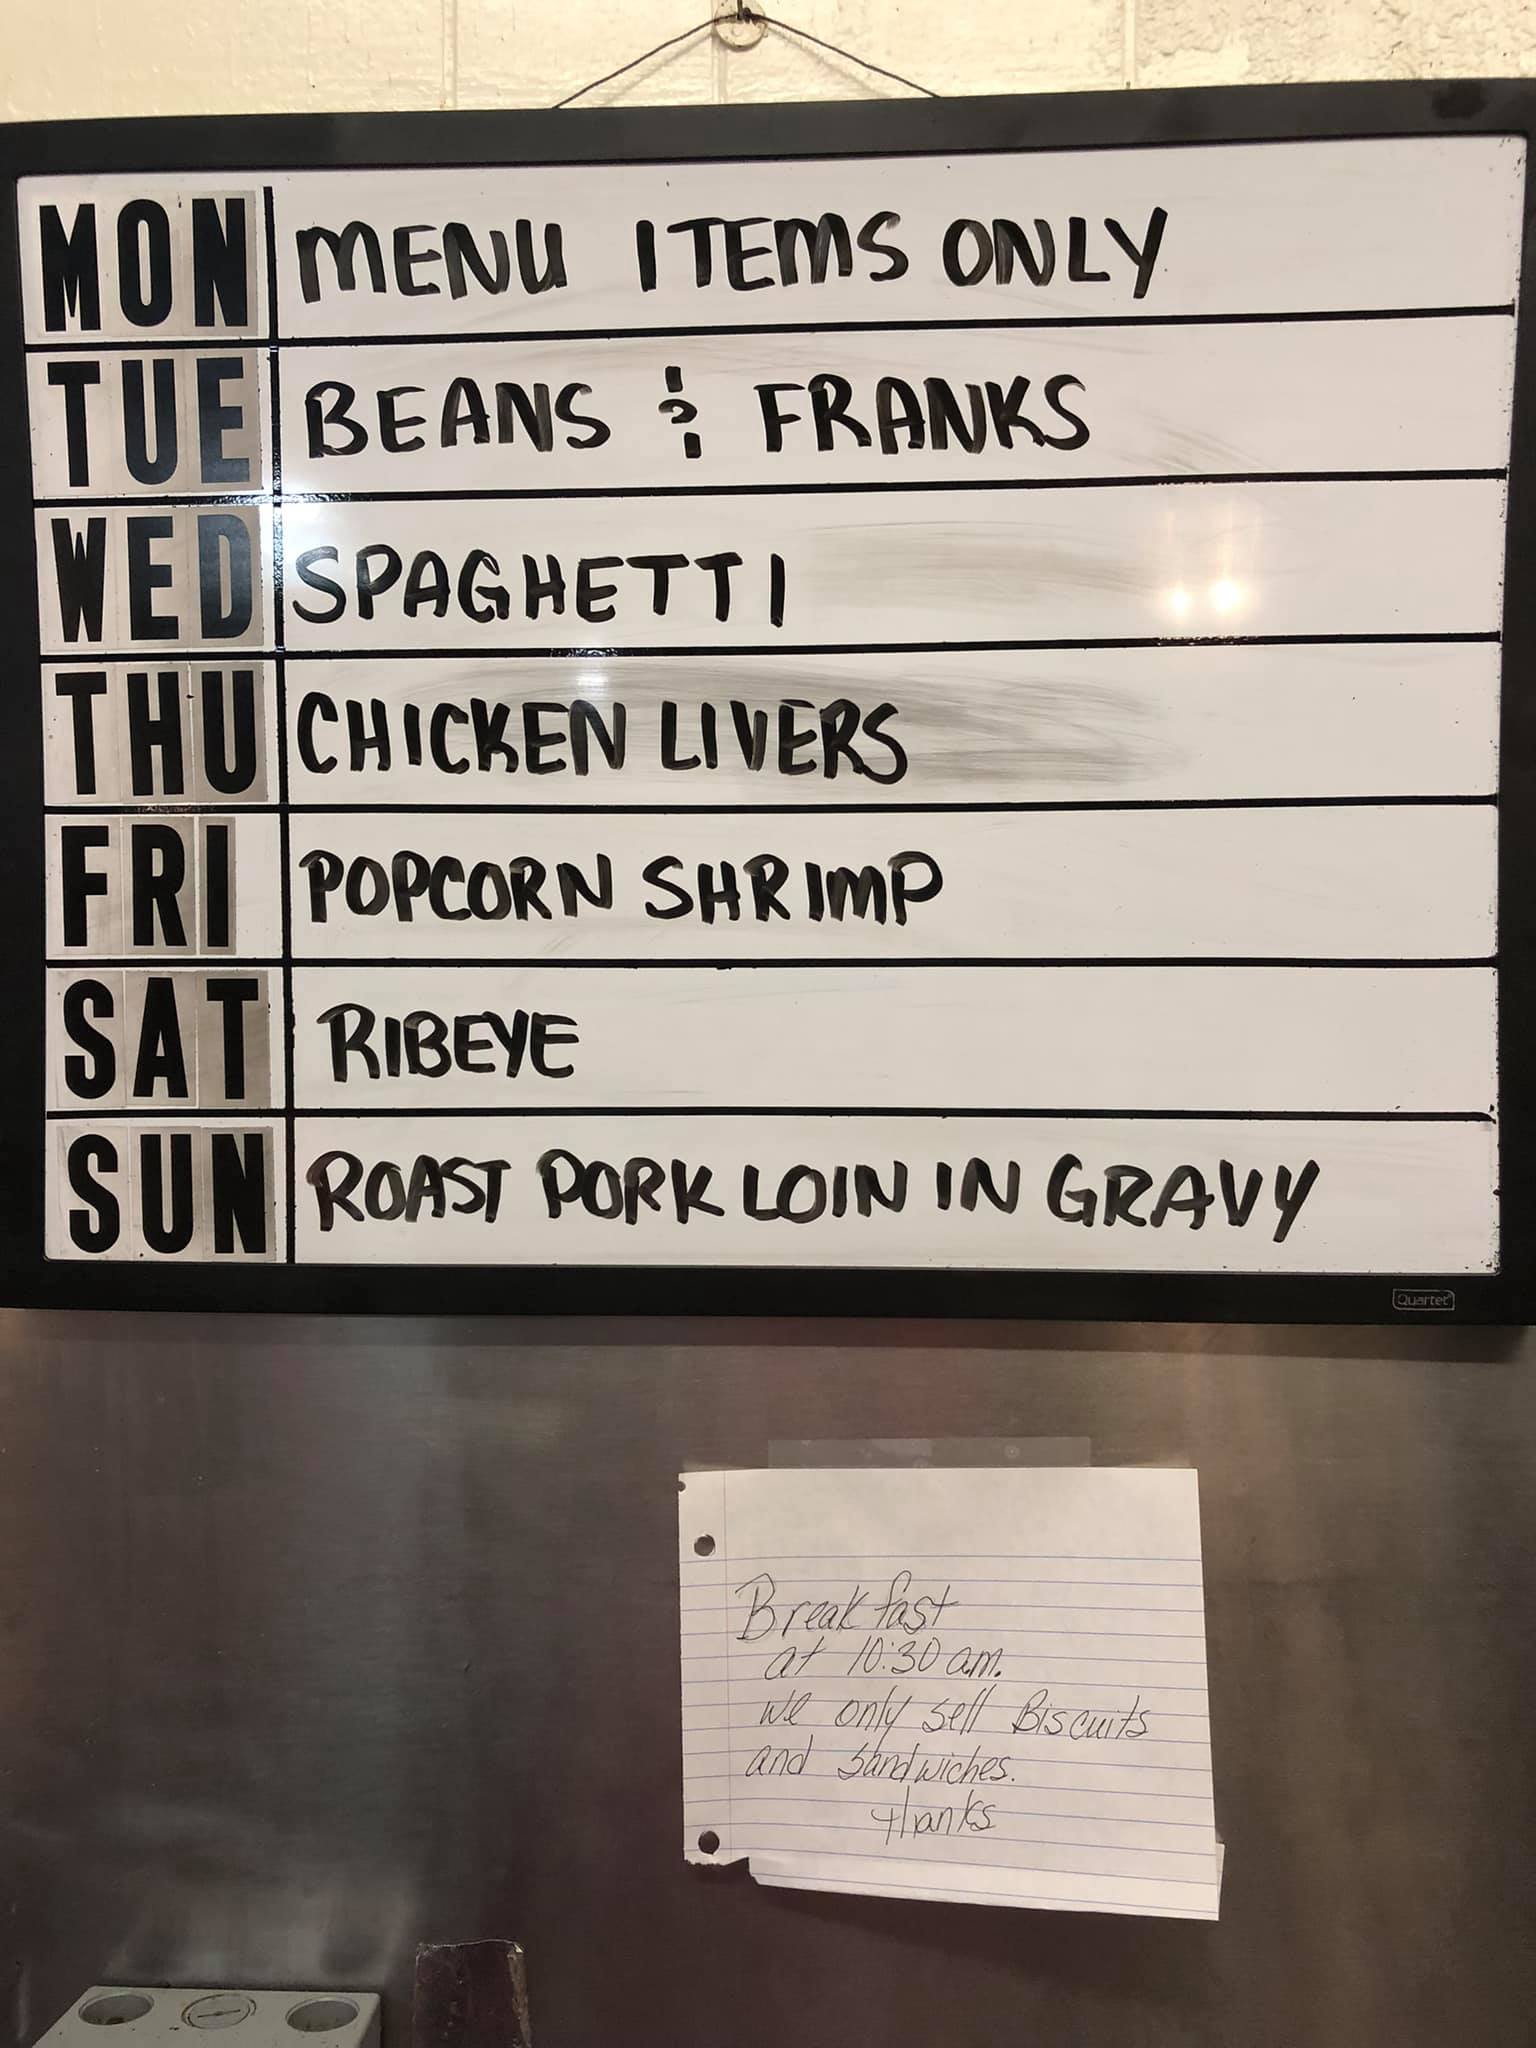 MON MENU ITEMS ONLY
TUE BEANS & FRANKS
WED SPAGHETTI
THU CHICKEN LIVERS
FRI POPCORN SHRIMP
SAT RIBEYE
SUN ROAST PORK LOIN IN GRAVY
Quartet
Breakfast
at 10:30 a.m.
we only sell Biscuits
and sandwiches.
thanks